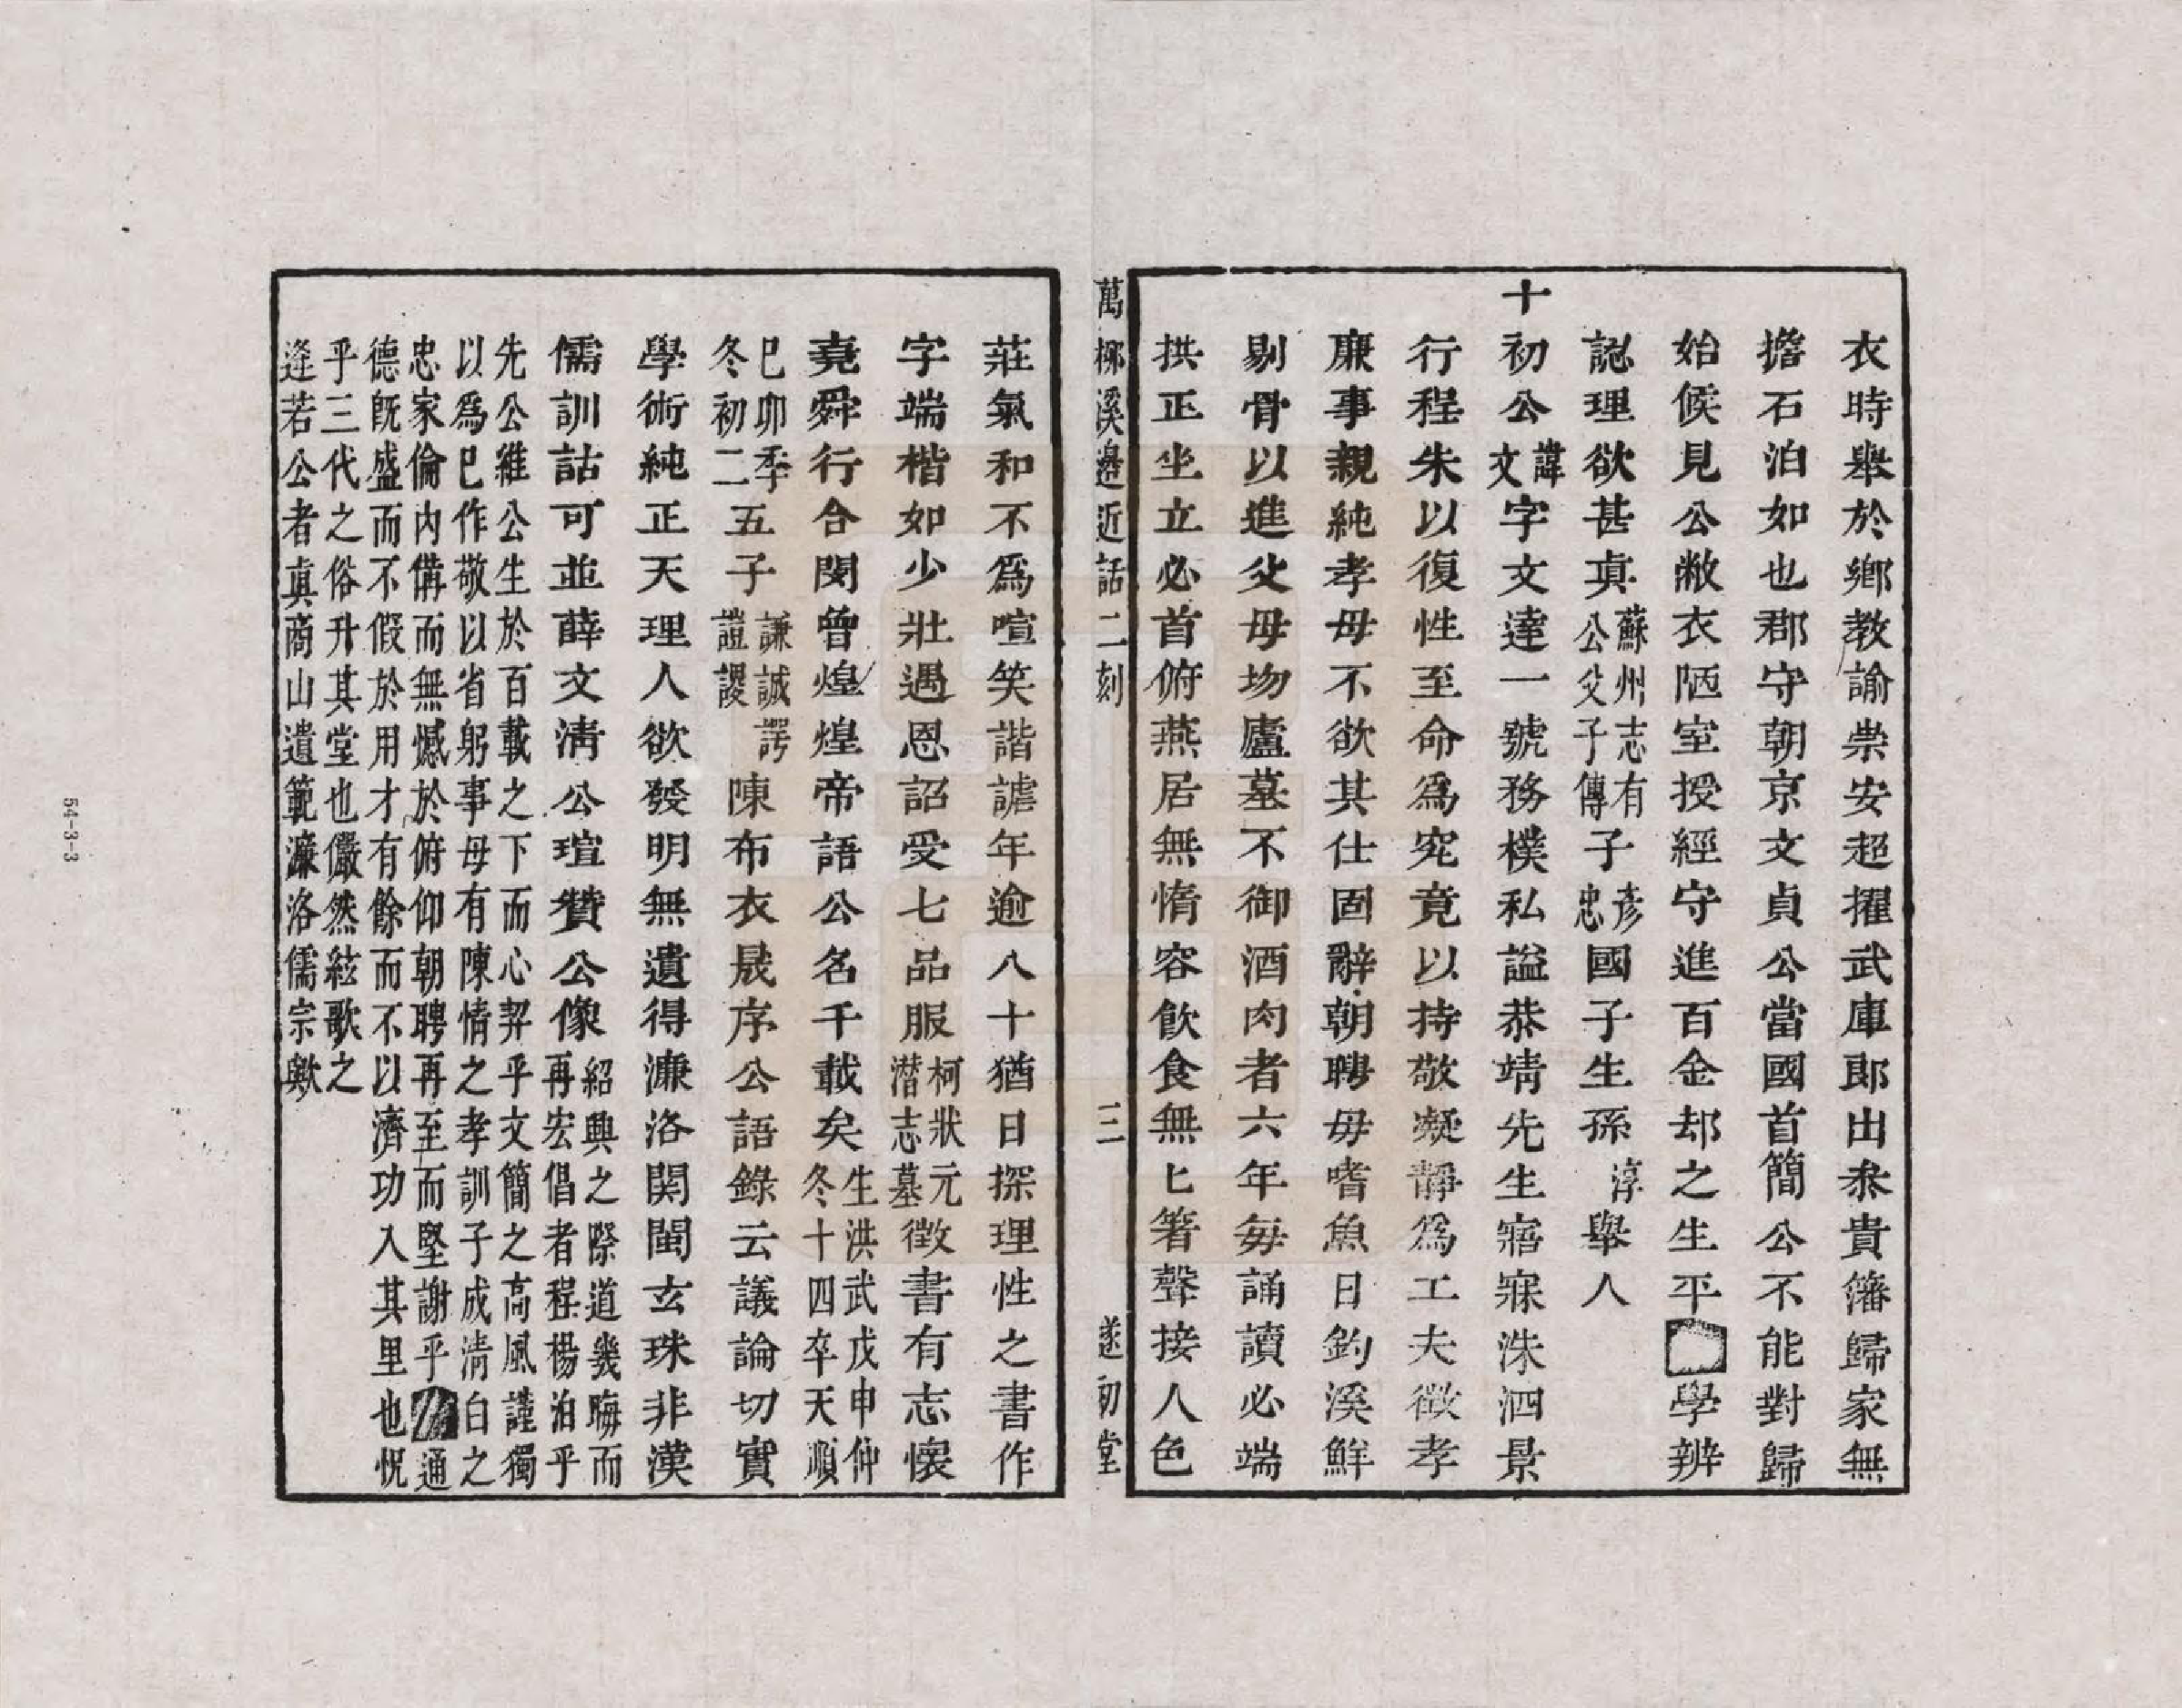 衣時舉於鄉教諭崇安超擢武庫郎出叅貴籓歸家無
擔石泊如也郡守朝京文貞公當國首簡公不能對歸
始候見公敝衣陋室授經守進百金却之生平學辨
認理欲甚真蘇州志有公父子傳子彥忠國子生孫淳舉人
十初公諱文字文達一號務樸私謚恭靖先生寤寐洙泗景
行程朱以復性至命爲究竟以持敬凝靜爲工夫徵孝
廉事親純孝母不欲其仕固辭朝聘母嗜魚日釣溪鮮
剔骨以進父母歿廬墓不御酒肉者六年每誦讀必端
拱正坐立必首俯燕居無惰容飲食無匕箸聲接人色
萬柳溪邊近話二刻 三 遂初堂
莊氣和不爲喧笑諧謔年逾八十猶日探理性之書作
字端楷如少壯遇恩詔受七品服柯狀元潜志墓徵書有志懷
堯舜行合閔曾煌煌帝語公名千載矣生洪武戊申仲冬十四卒天順
已卯季冬初二五子謙誠諤諲謖陳布衣晟序公語錄云議論切實
學術純正天理人欲發明無遺得濂洛関閩玄珠非漢
儒訓詁可並薛文清公瑄贊公像紹興之際道幾晦而再宏倡者程楊泊乎
先公維公生於百載之下而心契乎文簡之高風謹獨
以爲已作敬以省躬事母有陳情之孝訓子成清白之
忠家倫內備而無憾於俯仰朝聘再至而堅謝乎通
德既盛而不假於用才有餘而不以濟功入其里也怳
乎三代之俗升其堂也儼然絃歌之
逢若公者真商山遺範濂洛儒宗歟
54-3-3